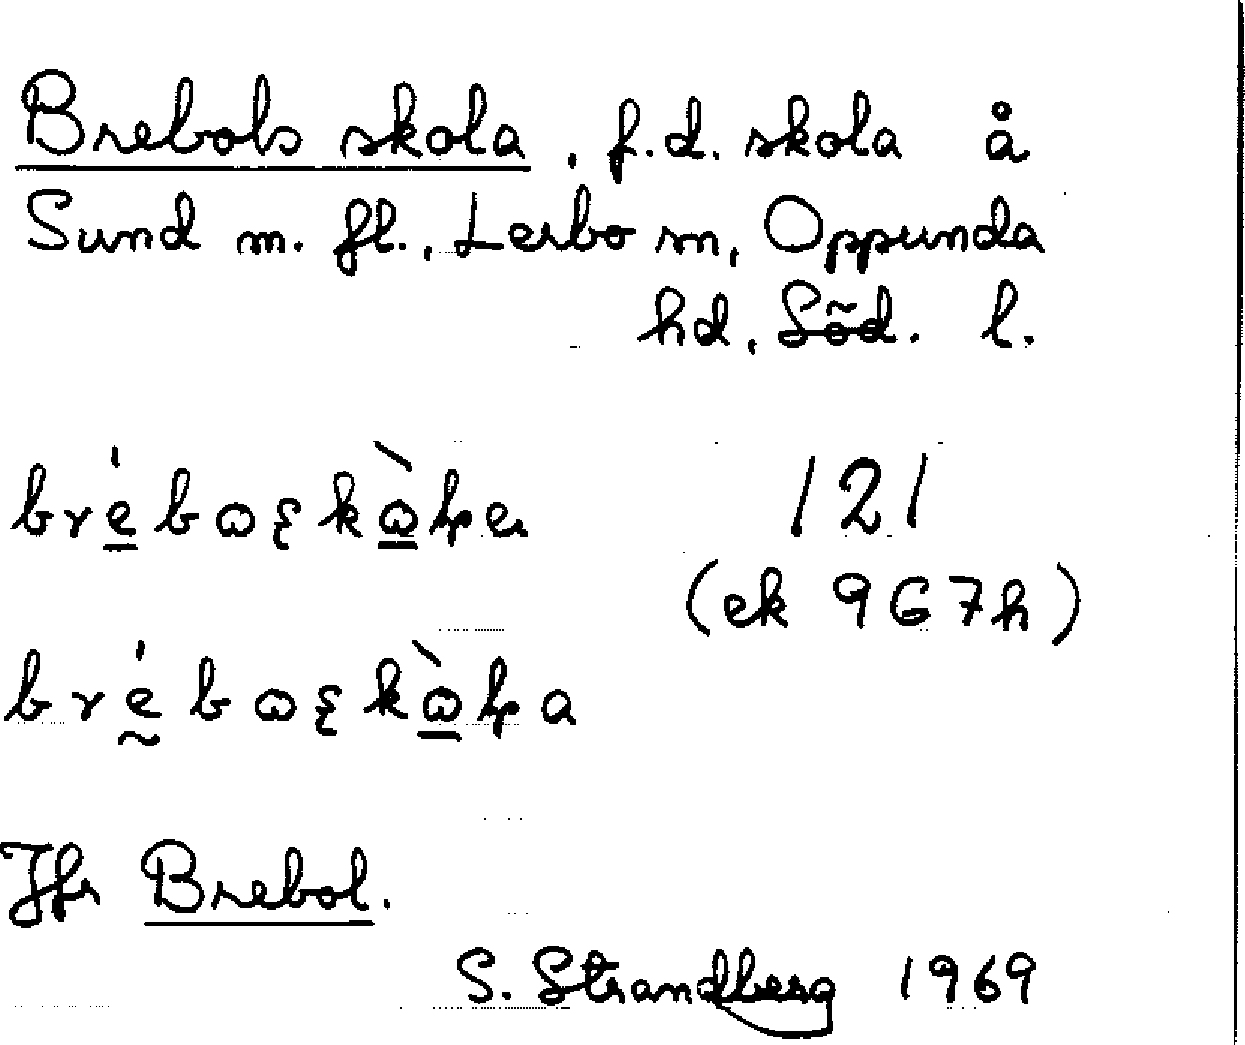 Brebols skola, f.d. skola å
Sund m. fl., Lerbo sn, Oppunda
hd, Söd. l.
121
(ek 9G7h)
Jfr Brebol.
S. Strandberg 1969